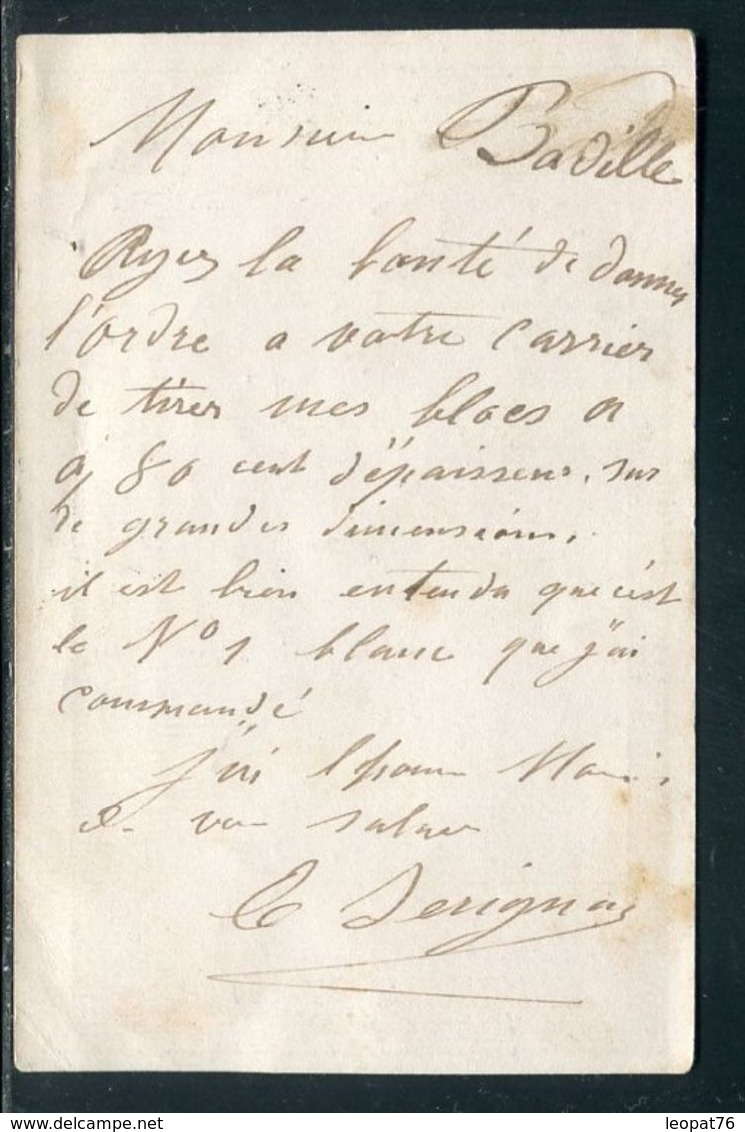 Monsieur Badille
Ayez la bonté de donner
l'ordre a votre carrier
de tirer mes blocs a
80 cent d'épaisseur, sur
de grandes dimensions,
il est bien entendu que c'est
le N° 1 blanc que j'ai
commandé
j'ai l'honneur Monsieur
de vous saluer
Serignac
leopat76